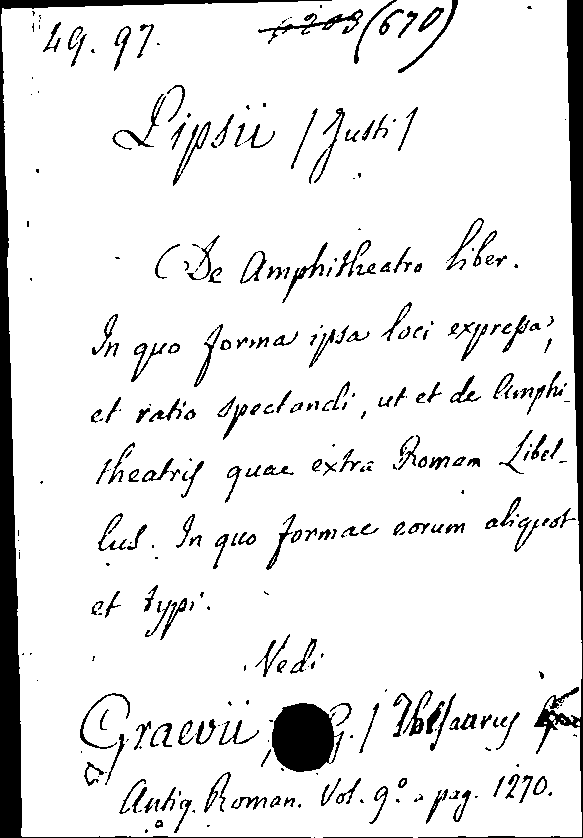 49. 97. 6203 (670)
Lipsii / Justi /
De Amphitheatro liber.
In quo forma ipsa loci expressa,
et ratio spectandi, ut et de Amphi-
theatris quae extra Romam Libel-
lus. In quo formae eorum aliquot
et typi.
Vedi
Graevii / G. / Thesaurus
Antiq. Roman. Vol. 9.º pag. 1270.